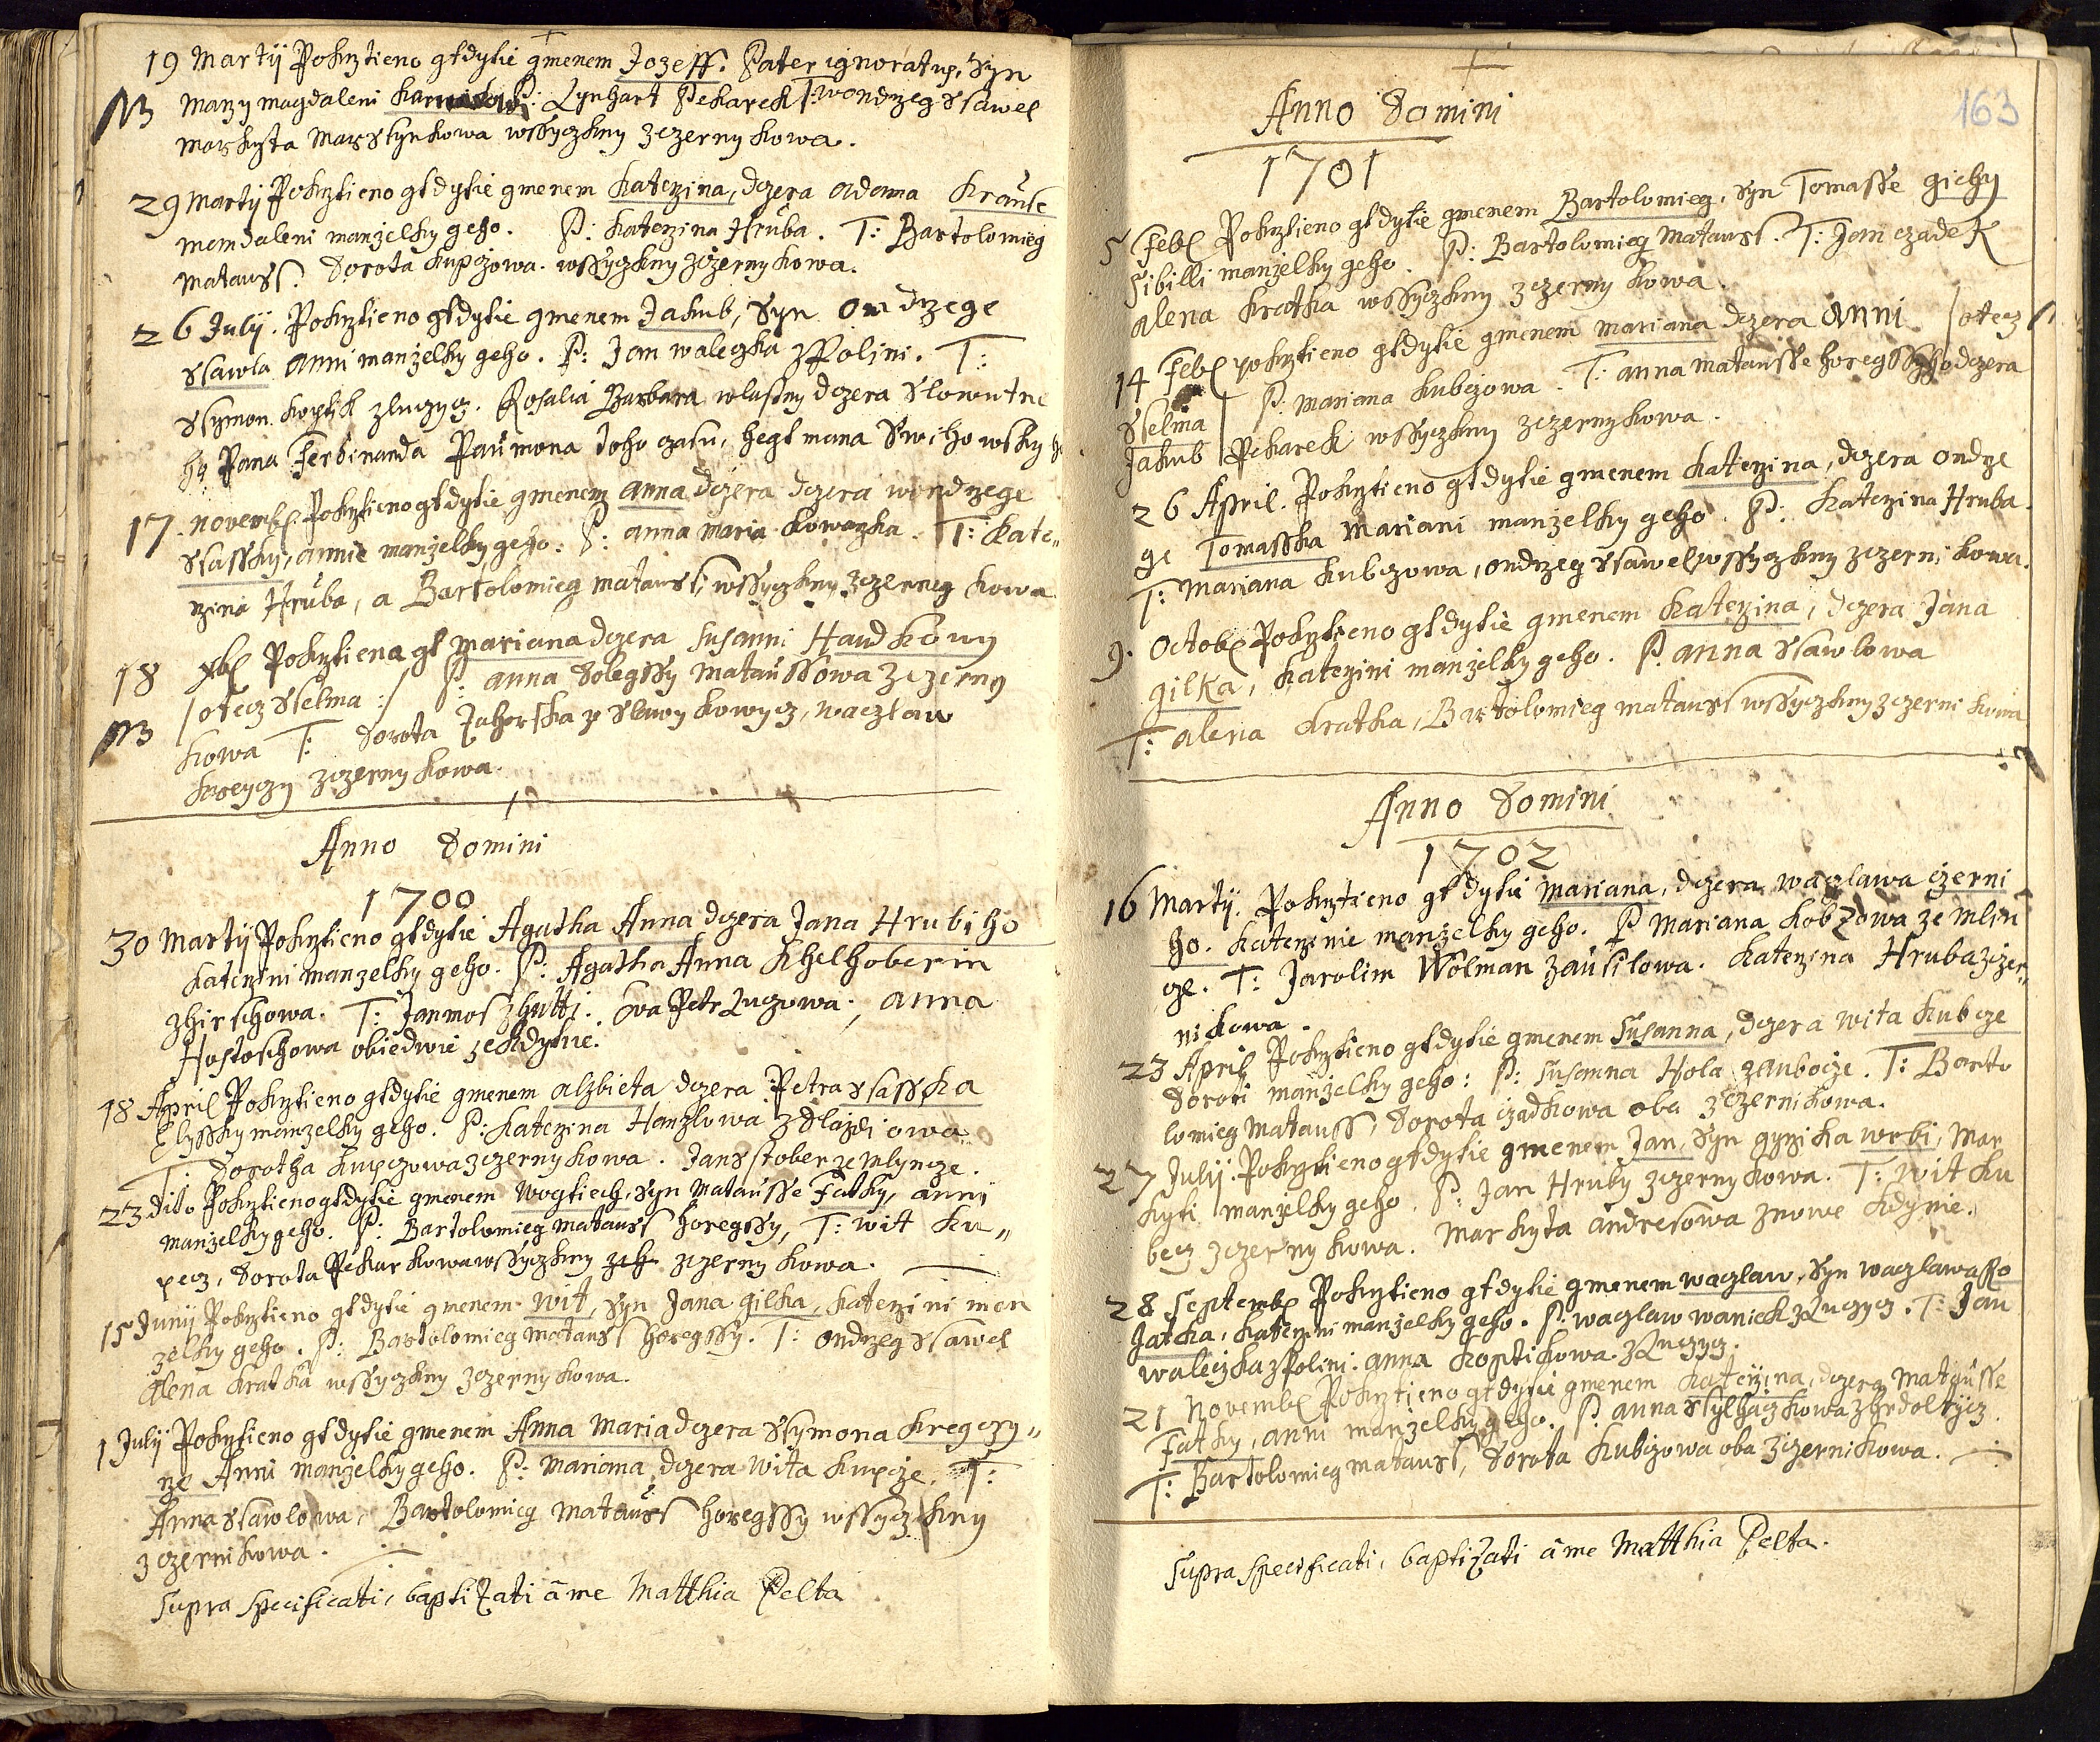 19 Martij Pokrztieno gt dytie gmenem Jozeff. Pater ignoratus, Syn
NB Marzy magdaleni P: Lynhart Pekarek T: wondrzeg Ssawel
Markyta Marsstynkowa wssyczkny z czerny kowa.
29 Martij Pokrztieno gt dytie gmenem Katerzina, dczera Adama Krause
Mamdaleni manzelky geho. P: Katerzina Hruba. T: Bartolomieg
Matauss. Dorota Kupczowa. wssyczkny z czernykowa.
26 Julij. Pokrztieno gt dytie gmenem Jakub, Syn Ondrzege
Ssawla anni manzelky geho. P: Jan waleczka z Polini. T:
Ssymon Koptik z luczycz. Rosalia Barbara wlastny dczera Slowutne
ho Pana Ferdinanda Paumona toho czasu, hegtmana Swihowsky ho
17. Novemb Pokrztieno gt dytie gmenem anna dczera dczera wondrzege
Ssassky, annie manzelky geho. P: anna Maria Kowarzka. T: Kate„
rzina Hruba, a Bartolomieg matauss, wssyczkny z czerneg kowa
18 xb Pokrztiena gt mariana dczera Susanni Haudkowy
NB / otecz Sselma :/ P: anna Dolegssy Mataussowa z czerny
kowa T: Dorota Zahorska z Slawykowycz, waczlaw
Kreyczy z czerny kowa.
Anno Domini
1700
30 Martij Pokrztieno gt dytie Agatha Anna dczera Jana Hrubiho
Katerzini manzelky geho. P: Agatha Anna Khelhoberin
z hirschowa. T: Jan mos z hutti. Ewa Petr Luczowa, anna
Hostoschowa obiedwie ze Kdynie.
18 April Pokrztieno gt dytie gmenem alzbieta dczera Petra Ssasska
Elyssky manzelky geho. P: Katerzina Hanzlowa z Dlazdiowa
T: Dorotha Kupczowa z czernykowa. Jan Sstober ze Mlyncze.
23 dito Pokrztieno gt dytie gmenem wogtiech, Syn Matausse Fatky, anny
manzelky geho. P: Bartolomieg Matauss horegssy, T: wit Ku„
pecz, Dorota Pekarkowa wssyczkny z czerny kowa.
15 Junij Pokrztieno gt dytie gmenem wit, Syn Jana Gilka, Katerzini man
zelky geho. P: Bartolomieg matauss horegssy. T: Ondrzeg Ssawel
Alena Kratka wssyczkny z czernykowa.
1 Julij Pokrztieno gt dytie gmenem Anna Maria dczera Ssymona Kregczy„
rze Anni manzelky geho. P: Mariana dczera Wita Kupcze, T:
Anna Ssawlowa, Bartolomieg Matauss horegssy wssyczkny
z czernikowa.
Supra specificati, baptizati â me Matthia Pelta
163
Anno Domini
1701
5 Feb Pokrztieno gt dytie gmenem Bartolomieg, Syn Tomasse gichy
Sibilli manzelky geho. P: Bartolomieg Matauss. T: Jan czadek
alena Kratka wssyczkny z czerny kowa.
14 Feb pokrztieno gt dytie gmenem mariana dczera anni / otecz
Sselma / P: mariana Kubczowa. T: anna matausse horegssyho dczera
Jakub Pekarek wssyczkny z czernykowa.
26 April. Pokrztieno gt dytie gmenem Katerzina, dczera ondrze
ge Tomasska Mariani manzelky geho. P: Katerzina Hruba.
T: Mariana Kubczowa, ondrzeg Ssawel wssyczkny z czernikowa.
9. Octob Pokrztieno gt dytie gmenem Katerzina, dczera Jana
Gilka, Katerzini manzelky geho. P. anna Ssawlowa
T: alena Kratka, Bartolomieg matauss wssyczkny z czernikowa
Anno Domini
1702
16 Martij. Pokrztieno gt dytie Mariana, dczera waczlawa czerni
ho. Katerzinie manzelky geho. P Mariana Kobzowa ze Mlin
cze. T: Jarolim Wolman z ausilowa. Katerzina Hruba z czer„
nikowa.
23 April Pokrztieno gt dytie gmenem Susanna, dczera wita Kubcze
Doroti manzelky geho: P: Susanna Hola z aubocze. T: Barto
lomieg Matauss, Dorota czadkowa oba z czernikowa.
27 Julij. Pokrztieno gt dytie gmenem Jan, Syn gyrzika wrbi, Mar
kyti manzelky geho. P: Jan Hruby z czernykowa. T: Wit Ku
becz z czernykowa. Markyta andresowa z nowe Kdynie.
28 Septemb Pokrztieno gt dytie gmenem waczlaw, Syn waczlawa Ro
Jatka, Katerzini manzelky geho. P: waczlaw waniek z Luczycz. T: Jan
waleczka z Polini. anna Koptikowa z Luczycz.
21 Novemb Pokrztieno gt dytie gmenem Katerzina, dczera Matausse
Fatky, anni manzelky geho. P. anna Sstylhaczkowa z brdoltycz.
T: Bartolomieg matauss, Dorota Kubczowa oba z czernikowa.
Supra specificati, baptizati â me Matthia Pelta.